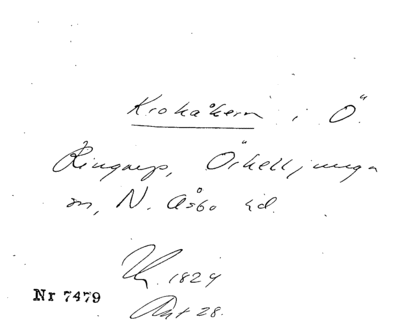 Krokåkern i Ö.
Ringarp, Örkelljunga
sn, N. Åsbo hd.
1824
Nr 7479
Akt 28.